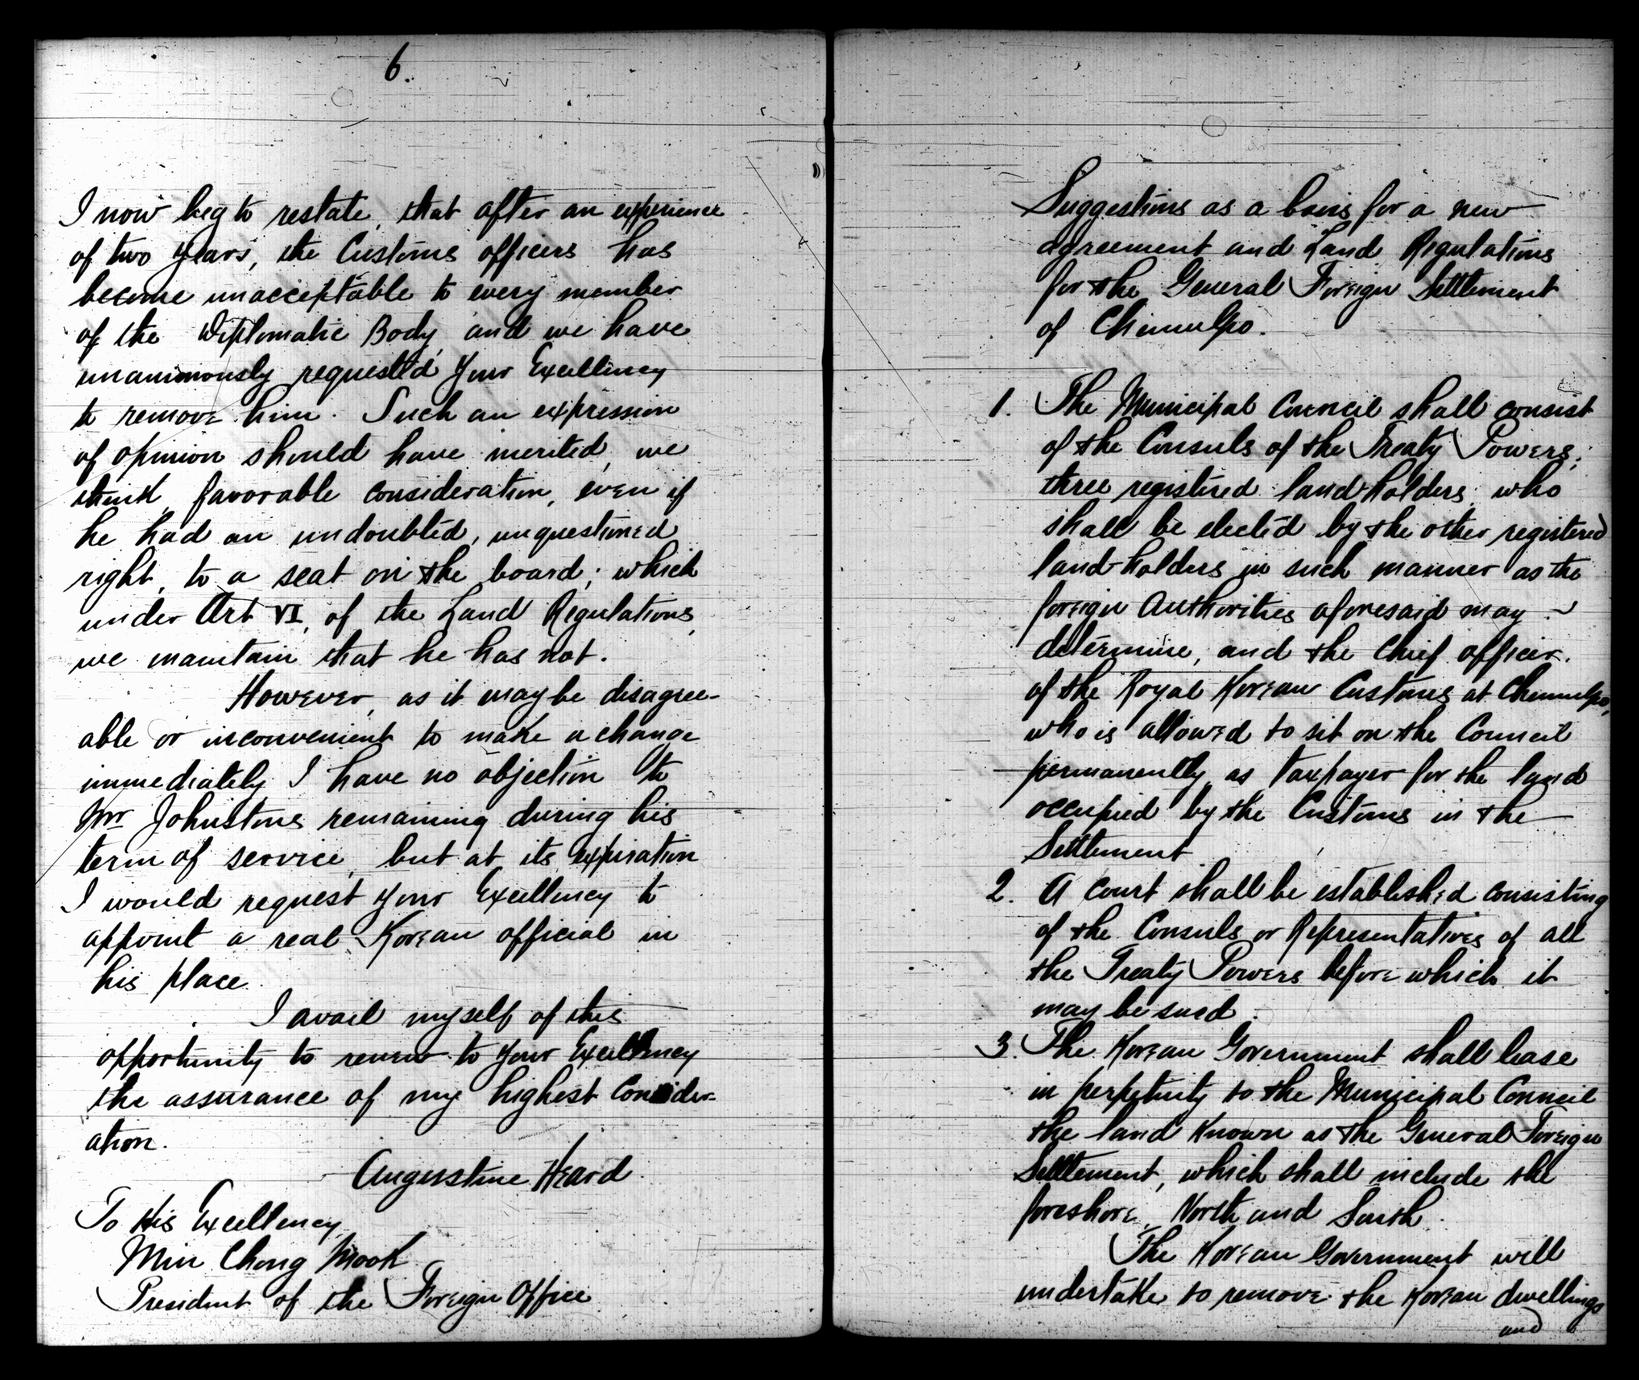 6.
I now beg to restate, that after an experience
of two years, the Customs officers has
become unacceptable to every member
of the Diplomatic Body, and we have
unanimously requested Your Excellency
to remove him. Such an expression
of opinion should have merited, we
think, favorable consideration, even if
he had an undoubted, unquestioned
right, to a seat on the board; which
under Art VI, of the Land Regulations,
we maintain that he has not.
However, as it may be disagree-
able or inconvenient to make a change
immediately I have no objection to
Mr Johnstons remaining during his
term of service, but at its expiration
I would request Your Excellency to
appoint a real Korean official in
his place.
I avail myself of this
opportunity to renew to Your Excellency
the assurance of my highest Consider-
ation.
Augustine Heard
To His Excellency
Min Chong Mook
President of the Foreign Office
Suggestions as a basis for a new
agreement and Land Regulations
for the General Foreign Settlement
of Chemulpo.
1. The Municipal Council shall consist
of the Consuls of the Treaty Powers;
three registered land-holders who
shall be elected by the other registered
land-holders in such manner as the
foreign Authorities aforesaid may
determine, and the Chief officer.
of the Royal Korean Customs at Chemulpo,
who is allowed to sit on the Council
permanently as taxpayer for the land
occupied by the Customs in the
Settlement
2. A court shall be established consisting
of the Consuls or Representatives of all
the Treaty Powers before which it
may be sued.
3. The Korean Government shall lease
in perpetuity to the Municipal Council
the land known as the General Foreign
Settlement, which shall include the
foreshore, North and South.
The Korean Government will
undertake to remove the Korean dwellings
and